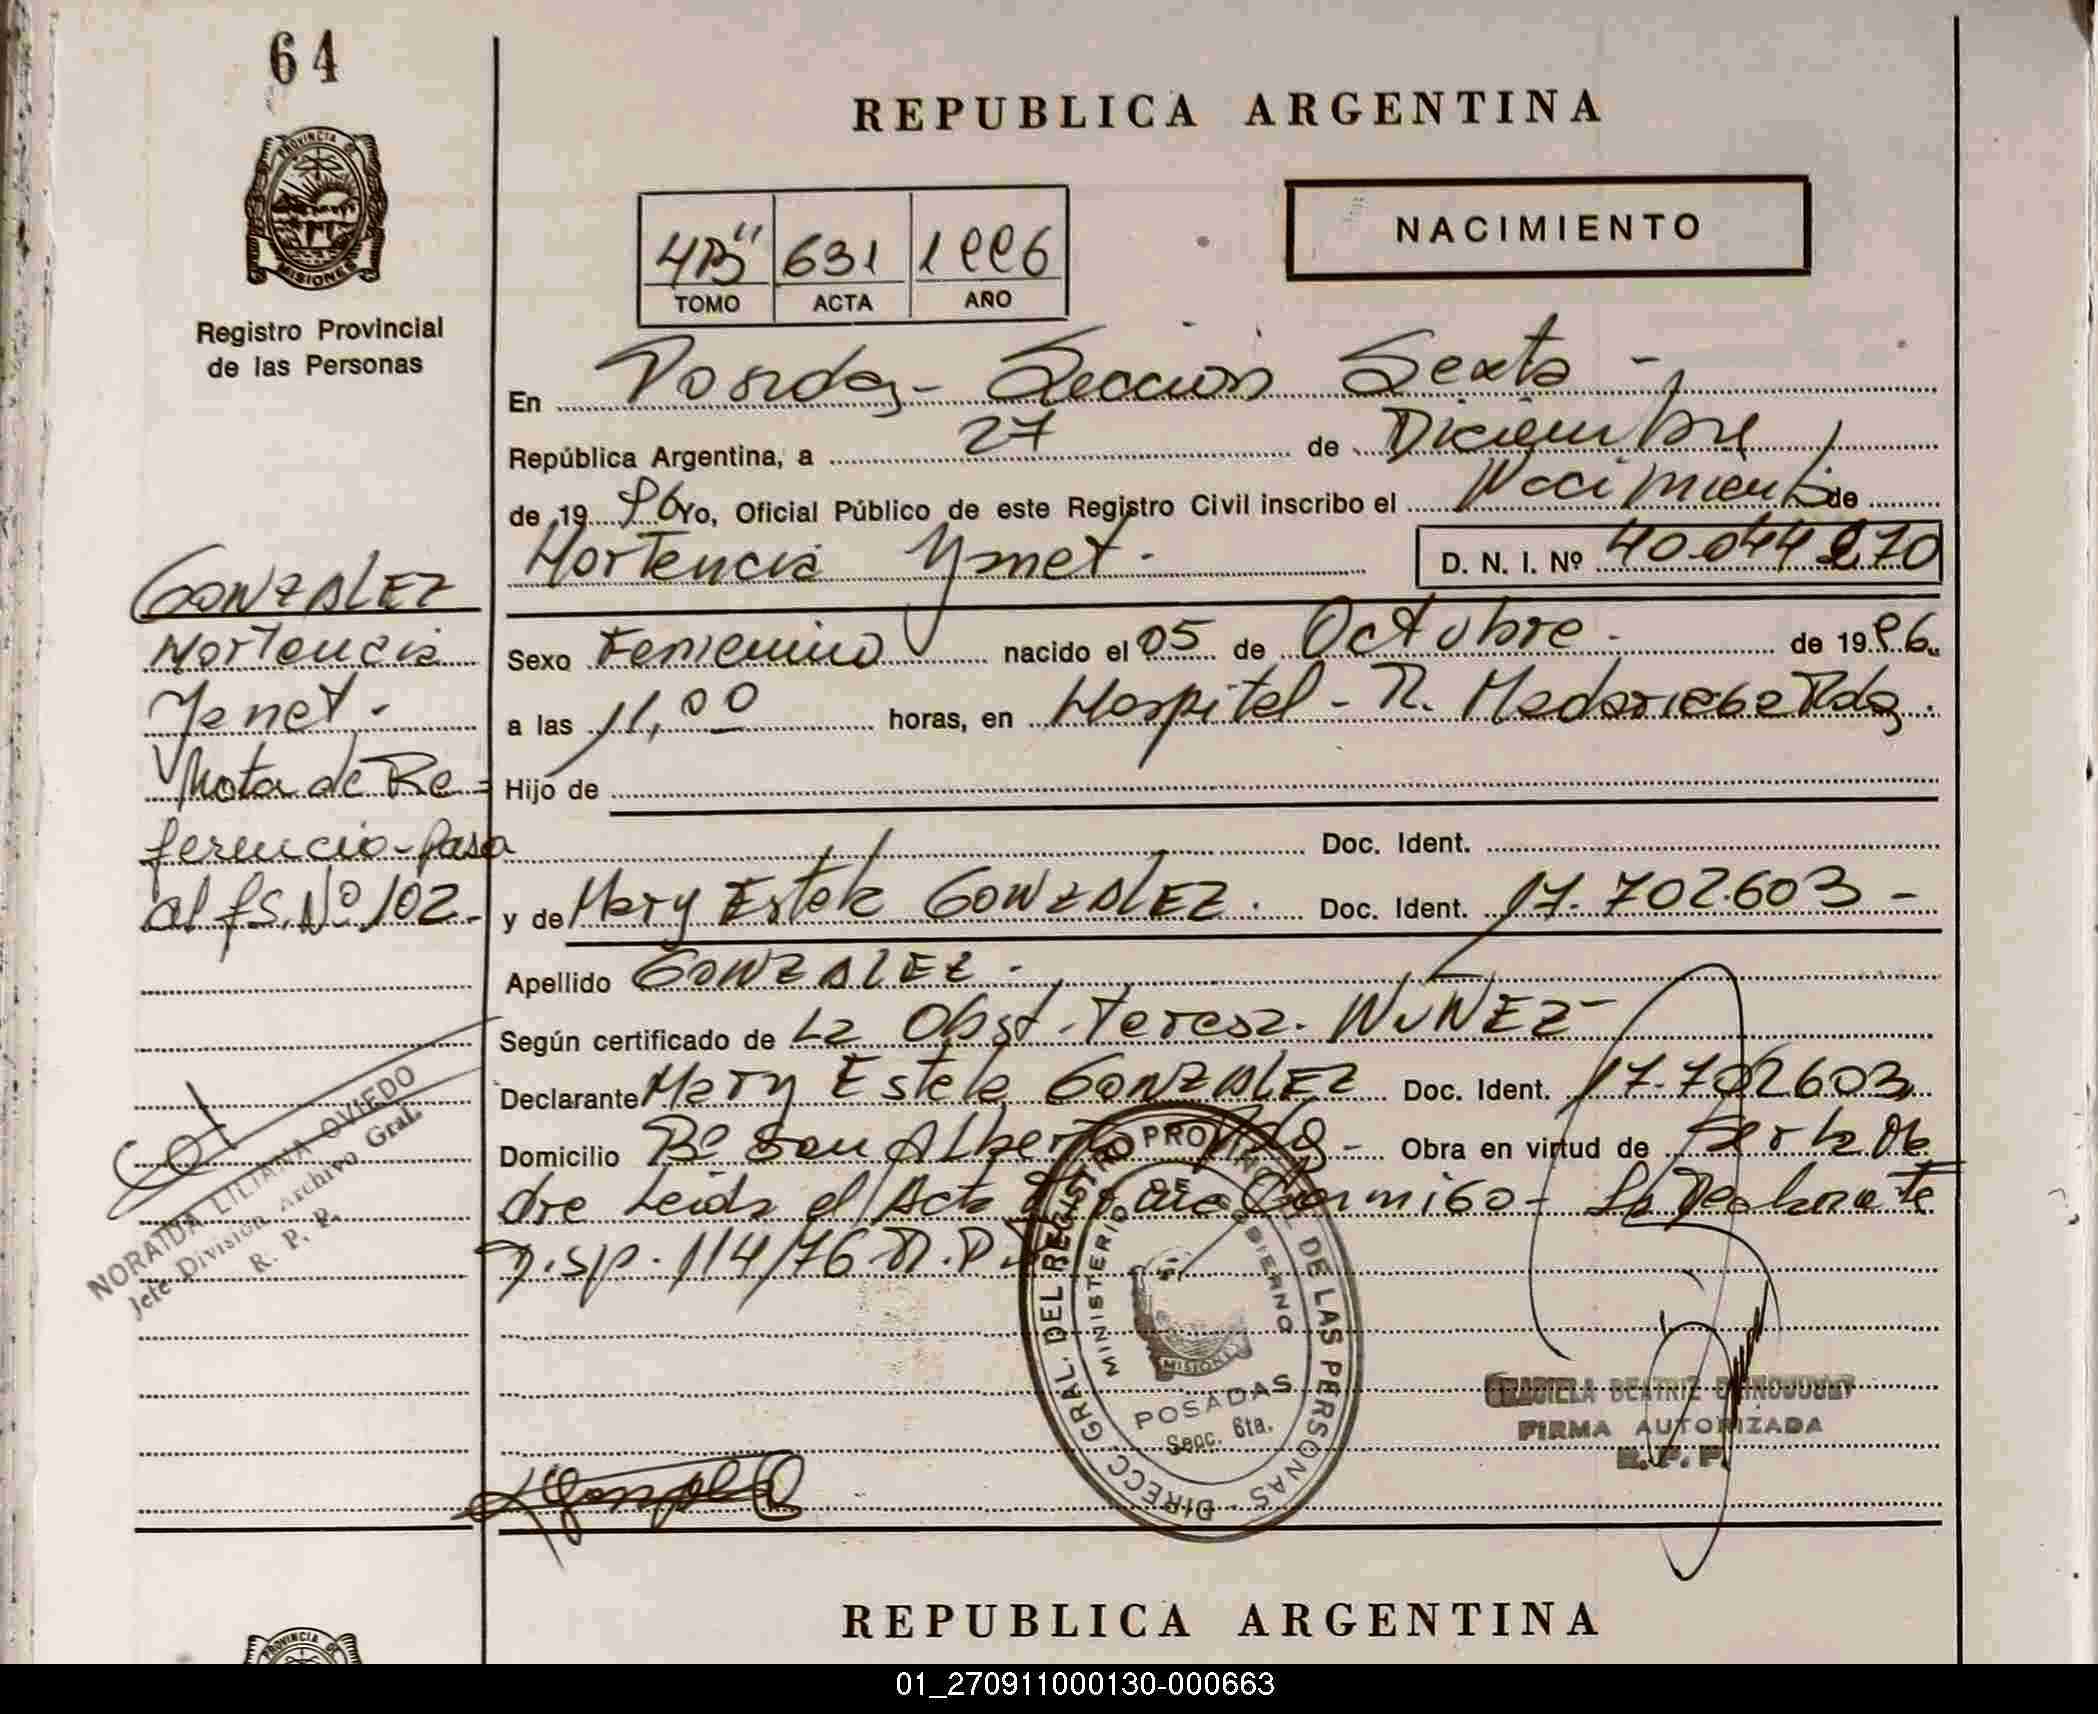 64
PROVINCIA DE
MISIONES
Registro Provincial
de las Personas
REPUBLICA ARGENTINA
NACIMIENTO
4B" 631 1996
TOMO ACTA AÑO
En Posadas - Sección Sexta -
República Argentina, a 27 de Diciembre
de 19 96 yo, Oficial Público de este Registro Civil inscribo el Nacimiento de
Hortencia Yanet - D. N. I. Nº 40.044.270
GONZALEZ
Hortencia
Yanet -
Nota de Re=
ferencia-pasa
al fs. Nº 102.-
Sexo Femenino nacido el 05 de Octubre - de 19 96.
a las 11,00 horas, en Hospital - R. Madariaga Pdas.
Hijo de
Doc. Ident.
y de Mary Estela GONZALEZ. Doc. Ident. 17.702.603 -
Apellido GONZALEZ -
Según certificado de La Obst. Teresa. NUÑEZ -
Declarante Mary Estela GONZALEZ Doc. Ident. 17.702603
Domicilio Bº San Alberto Pdas - Obra en virtud de ser la Ma
dre Leída el Acta Conmigo - La Declarante
D.sp. 114/76 R.P.
NORAIDA LILIANA OVIEDO
Jefe División Archivo Gral.
R. P. P.
DIRECC. GRAL. DEL REGISTRO PROVINCIAL DE LAS PERSONAS -
MINISTERIO DE GOBIERNO
MISIONES
POSADAS
Secc. 6ta.
GRACIELA BEATRIZ
FIRMA AUTORIZADA
R. P. P.
REPUBLICA ARGENTINA
PROVINCIA DE
01_270911000130-000663